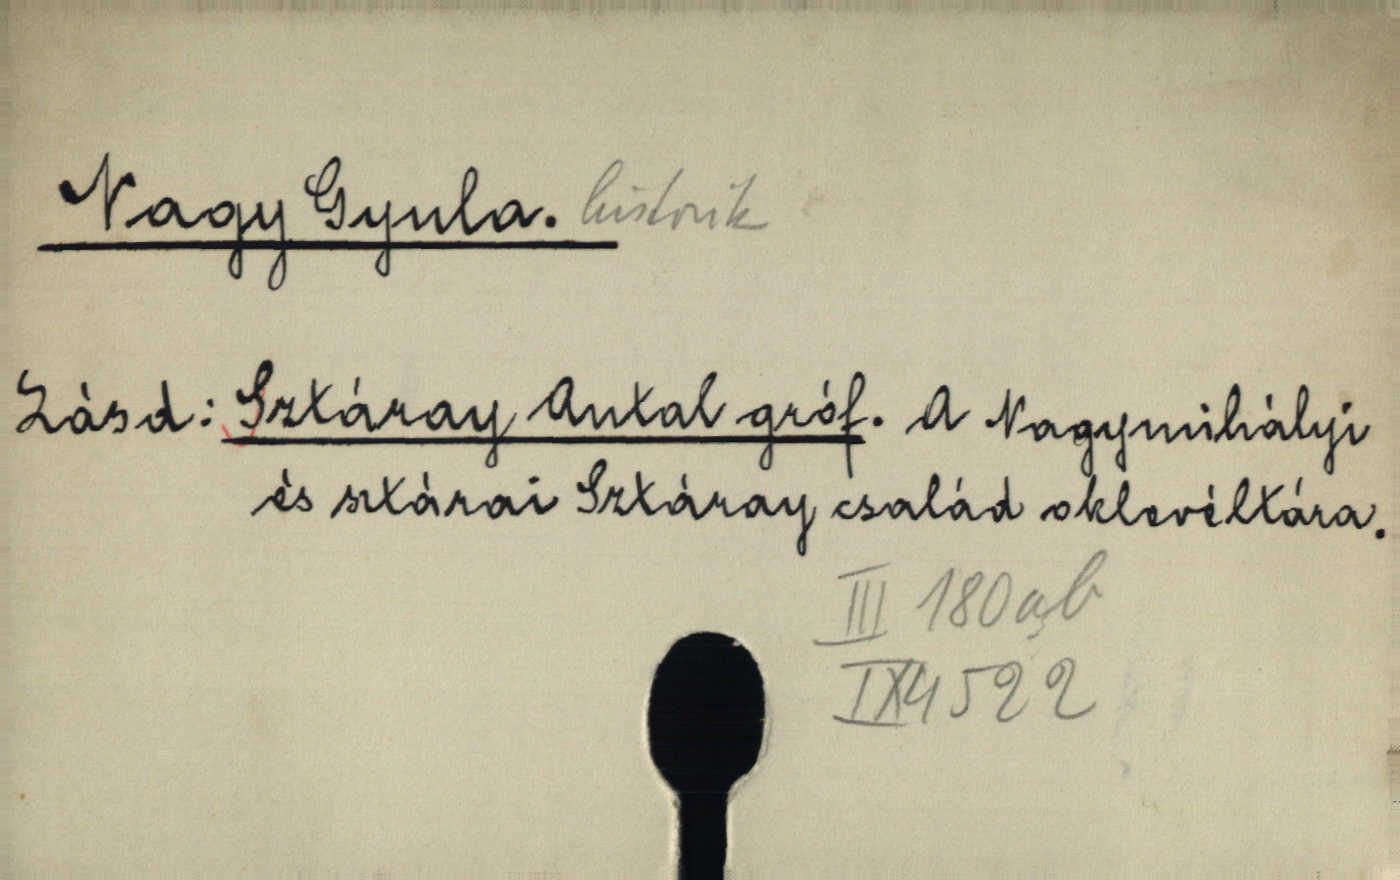 Nagy Gyula. historik
Lásd: Sztáray Antal gróf. A Nagymihályi
és sztárai Sztáray család oklevéltára.
III 180a,b
IX 4522